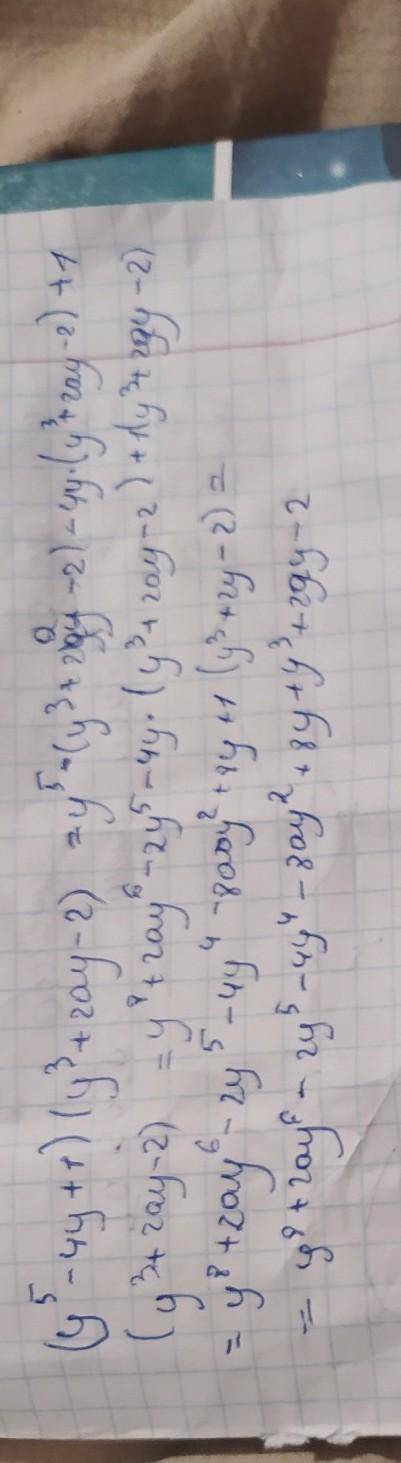 (y⁵ - 4y + 1) (y³ + 2ay - 2) = y⁵ · (y³ + 2ay - 2) - 4y · (y³ + 2ay - 2) + 1
(y³ + 2ay - 2) = y⁸ + 2ay⁶ - 2y⁵ - 4y · (y³ + 2ay - 2) + 1(y³ + 2ay - 2)
= y⁸ + 2ay⁶ - 2y⁵ - 4y⁴ - 8ay² + 8y + 1 (y³ + 2y - 2) =
= y⁸ + 2ay⁶ - 2y⁵ - 4y⁴ - 8ay² + 8y + y³ + 2ay - 2